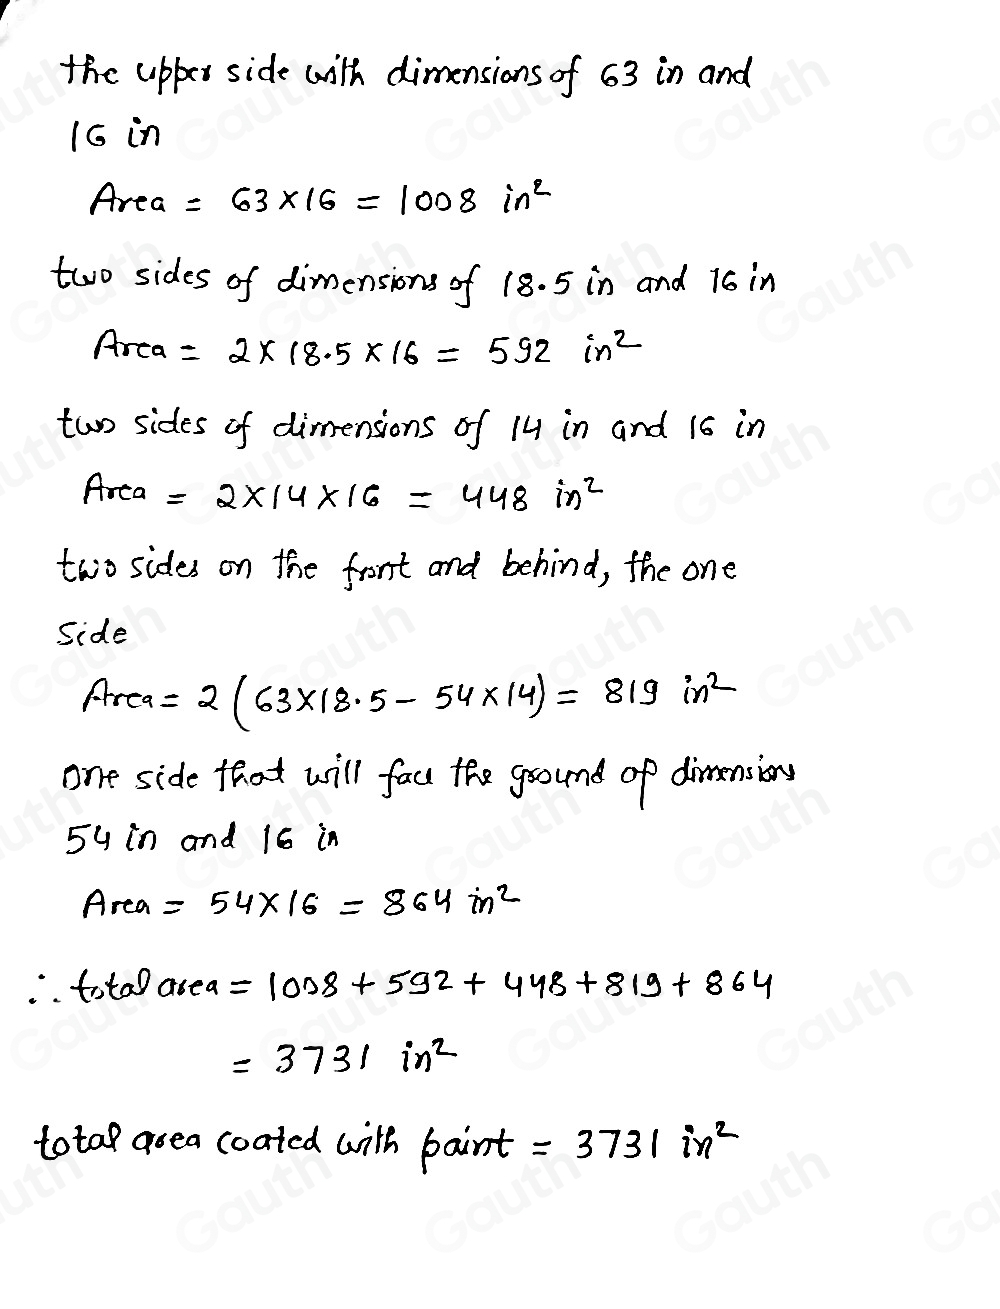 the upper side with dimensions of 63 in and
16 in
Area = 63×16 = 1008 in²
two sides of dimensions of 18.5 in and 16 in
Area = 2×18.5×16 = 592 in²
two sides of dimensions of 14 in and 16 in
Area = 2×14×16 = 448 in²
two sides on the front and behind, the one
side
Area = 2(63×18.5 - 54×14) = 819 in²
one side that will face the ground of dimensions
54 in and 16 in
Area = 54×16 = 864 in²
∴ total area = 1008 + 592 + 448 + 819 + 864
= 3731 in²
total area coated with paint = 3731 in²